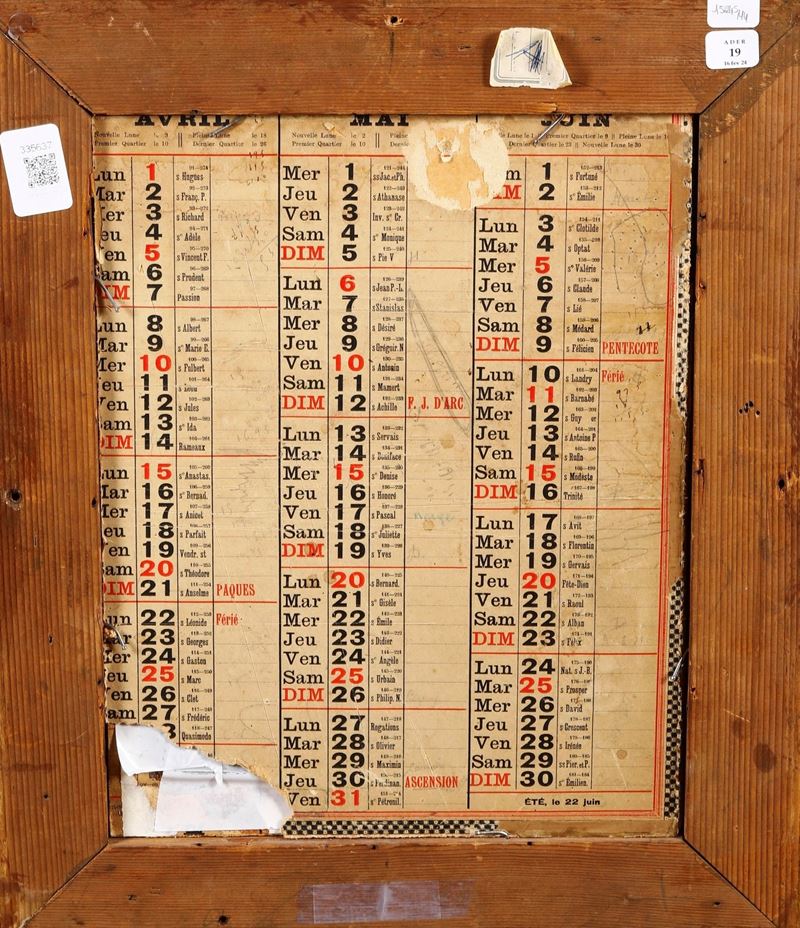 ADER
19
16 fev 24
335637
A
AVRIL
Nouvelle Lune le 9 || Pleine Lune le 18
Premier Quartier le 10 Dernier Quartier le 26
Lun 1 s Hugues
Mar 2 s Franç. P.
Mer 3 s Richard
Jeu 4 sᵉ Adèle
Ven 5 s Vincent F.
Sam 6 s Prudent
DIM 7 Passion
Lun 8 s Albert
Mar 9 sᵉ Marie E.
Mer 10 s Fulbert
Jeu 11 s Léon
Ven 12 s Jules
Sam 13 sᵉ Ida
DIM 14 Rameaux
Lun 15 sᵉ Anastas.
Mar 16 sᵉ Bernad.
Mer 17 s Anicet
Jeu 18 s Parfait
Ven 19 Vendr. st
Sam 20 s Théodore
DIM 21 s Anselme PAQUES
Lun 22 s Léonide Férié
Mar 23 s Georges
Mer 24 s Gaston
Jeu 25 s Marc
Ven 26 s Clet
Sam 27 s Frédéric
Quasimodo
MAI
Nouvelle Lune le 2 Pleine
Premier Quartier le 10 Dernier
Mer 1 ss Jac. et Ph.
Jeu 2 s Athanase
Ven 3 Inv. sᵉ Cr.
Sam 4 sᵉ Monique
DIM 5 s Pie V
Lun 6 s Jean P.-L.
Mar 7 s Stanislas
Mer 8 s Désiré
Jeu 9 s Grégoir. N
Ven 10 s Antonin
Sam 11 s Mamert
DIM 12 s Achille F. J. D'ARC
Lun 13 s Servais
Mar 14 s Boniface
Mer 15 sᵉ Denise
Jeu 16 s Honoré
Ven 17 s Pascal
Sam 18 sᵉ Juliette
DIM 19 s Yves
Lun 20 s Bernard.
Mar 21 sᵉ Gisèle
Mer 22 s Emile
Jeu 23 s Didier
Ven 24 sᵉ Angèle
Sam 25 s Urbain
DIM 26 s Philip. N.
Lun 27 Rogations
Mar 28 s Olivier
Mer 29 s Maximin
Jeu 30 s Ferdinan. ASCENSION
Ven 31 sᵉ Pétronil.
JUIN
Lune le 1 Premier Quartier le 9 || Pleine Lune le 1
Quartier le 23 || Nouvelle Lune le 30
m 1 s Fortuné
IM 2 sᵉ Émilie
Lun 3 sᵉ Clotilde
Mar 4 s Optat
Mer 5 sᵉ Valérie
Jeu 6 s Claude
Ven 7 s Lié
Sam 8 s Médard
DIM 9 s Félicien PENTECOTE
Lun 10 s Landry Férié
Mar 11 s Barnabé
Mer 12 s Guy
Jeu 13 s Antoine P
Ven 14 s Rufin
Sam 15 s Modeste
DIM 16 Trinité
Lun 17 s Avit
Mar 18 s Florentin
Mer 19 s Gervais
Jeu 20 Fête-Dieu
Ven 21 s Raoul
Sam 22 s Alban
DIM 23 s Félix
Lun 24 Nat. s J.-B.
Mar 25 s Prosper
Mer 26 s David
Jeu 27 s Crescent
Ven 28 s Irénée
Sam 29 ss Pier. et P.
DIM 30 s Emilien.
ÉTÉ, le 22 juin